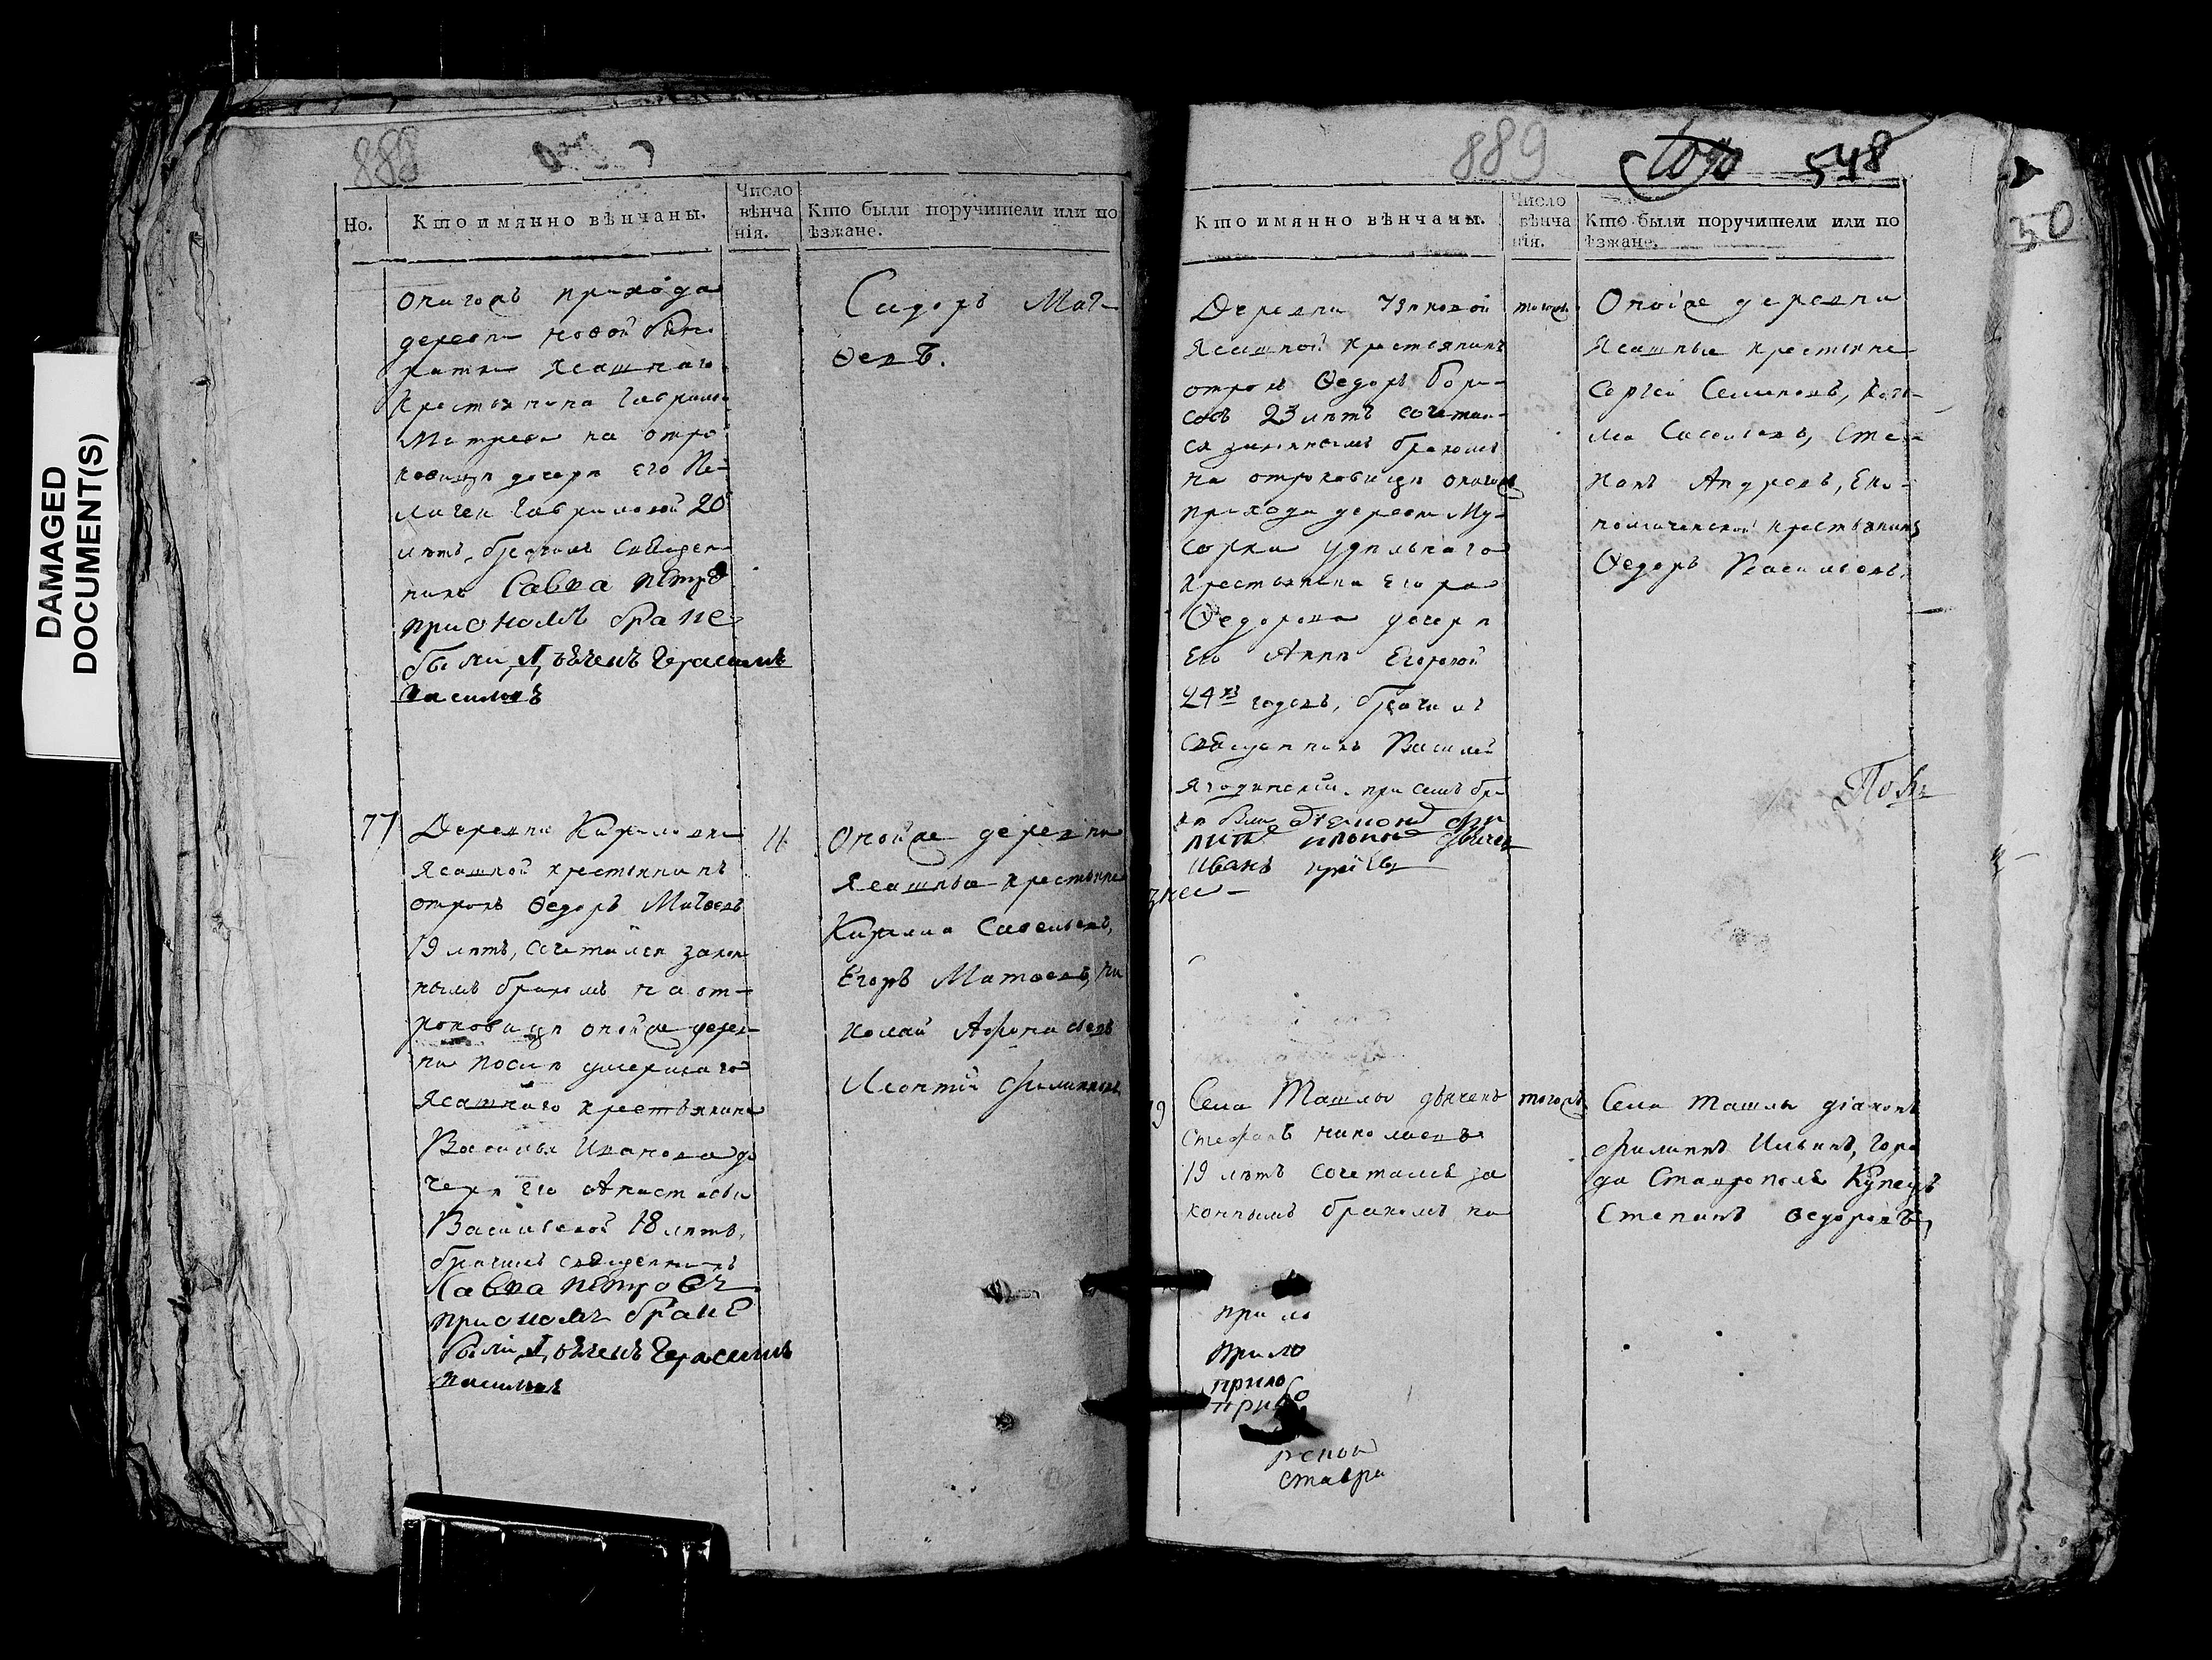 DAMAGED
DOCUMENT(S)
888
Но.
Кто имянно вѣнчаны.
Число
вѣнча
нія.
Кто были поручители или по
ѣзжане.
прихода
деревни новой
ясашнаго
крестьянина Гаврила
Матвеева на отро
ковице дочери его Пе-
лагеи Гавриловой 20
летъ, брачилъ священ-
никъ Савва петро
при ономъ браке
были дьяченъ Герасимъ
василевъ
Сидоръ Мат-
ѳевъ.
77
Деревни Кириловки
ясашной крестьянинъ
отрокъ Ѳедоръ Матѳевъ
19 летъ, сочетался закон
нымъ бракомъ на от-
роковице оной же дерев-
ни после умершаго
ясашнаго крестьянина
Василья Иванова до
чери его Анастасьи
Васильевой 18 летъ,
брачилъ священникъ
Савва петровъ
при ономъ браке
были дьяченъ Герасимъ
василевъ
11
Оной же деревни
ясашныя крестьяне
Кирила Савельевъ,
Егоръ Матвеевъ, Ни
колай Афонасьевъ
Леонтей Филиповъ
889
548
50
Кто имянно вѣнчаны.
Число
вѣнча
нія.
Кто были поручители или по
ѣзжане.
Деревни Узюковой
ясашной крестьянинъ
отрокъ Ѳедоръ Бори-
совъ 23 летъ сочетал-
ся законнымъ бракомъ
на отроковице онагожъ
прихода деревни Му-
сорки удельнаго
крестьянина Егора
Ѳедорова дочери
его Анне Егоровой
24хъ годовъ, брачилъ
священникъ Василей
Ягодинский. при семъ бра
ке были
Иванъ
тогожъ
Оной же деревни
ясашныя крестьяне
Сергей Семеновъ, Козь-
ма Савельевъ, Сте-
панъ Андреевъ, Эко-
номической крестьянинъ
Ѳедоръ Васильевъ.
9
Села Ташлы дьяченъ
Стефанъ николаевъ
19 летъ сочетался за
коннымъ бракомъ на
тогожъ
Села Ташлы діаконъ
Филиппъ Ильинъ, Горо
да Ставрополя Купецъ
Степанъ Ѳедоровъ,
прило
прило
прило
прибо
ставри